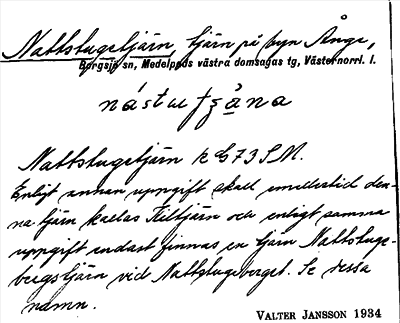 Nattstugetjärn, tjärn på byn Ånge,
Borgsjö sn, Medelpads västra domsagas tg, Västernorrl. l.
Nattstugetjärn k G73 S M.
Enligt annan uppgift skall emellertid den-
na tjärn kallas Kiltjärn och enligt samma
uppgift endast finnas en tjärn Nattstuge-
bergstjärn vid Nattstugeberget. Se dessa
namn.
VALTER JANSSON 1934